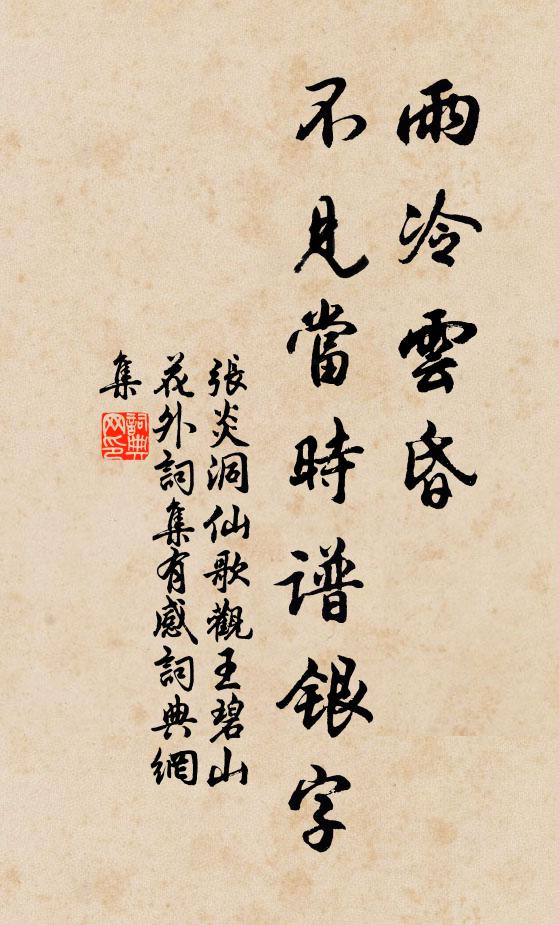 雨冷雲昏
不見當時譜銀字
張炎洞仙歌觀王碧山
花外詞集有感詞典網
集
詞典
网印